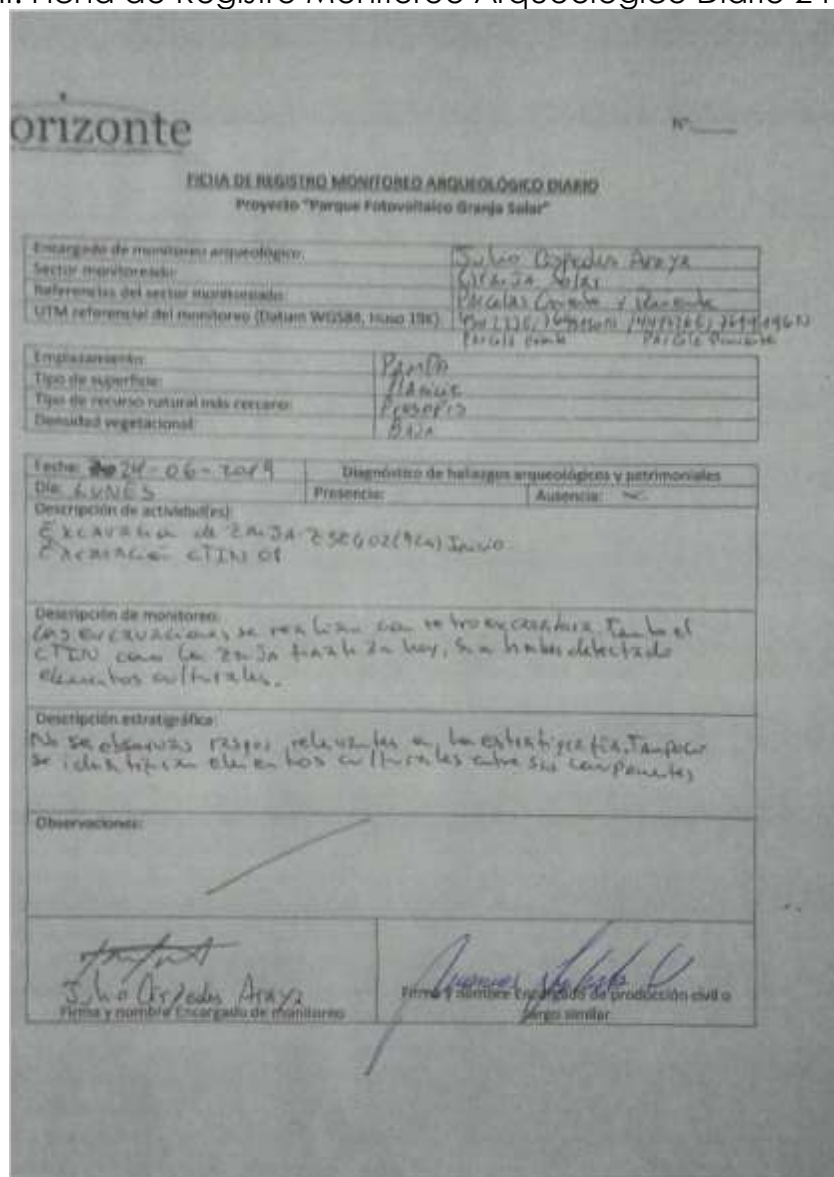 Ficha de Registro Monitoreo Arqueológico Diario
orizonte
N°
FICHA DE REGISTRO MONITOREO ARQUEOLÓGICO DIARIO
Proyecto "Parque Fotovoltaico Granja Solar"
Encargado de monitoreo arqueológico: Julio Céspedes Araya
Sector monitoreado: Granja Solar
Referencias del sector monitoreado: Parcelas Oriente y Poniente
UTM referencial del monitoreo (Datum WGS84, Huso 19K)
Parcela Poniente
Emplazamiento: PAMPA
Tipo de superficie: Planicie
Tipo de recurso natural más cercano: Prosopis
Densidad vegetacional: BAJA
Fecha: 24-06-2019 Diagnóstico de hallazgos arqueológicos y patrimoniales
Día: LUNES Presencia: Ausencia:
Descripción de actividad(es):
Excavación de ZANJA Inicio
Excavación CTIN
Descripción de monitoreo:
Las excavaciones se realizan con retroexcavadora. Tanto el
CTIN como la Zanja finalizan hoy, sin haber detectado
elementos culturales.
Descripción estratigráfica:
No se observan rasgos relevantes en la estratigrafía. Tampoco
se identifican elementos culturales entre sus componentes
Observaciones:
Julio Céspedes Araya
Firma y nombre Encargado de monitoreo
Firma y nombre Encargado de producción civil o
cargo similar